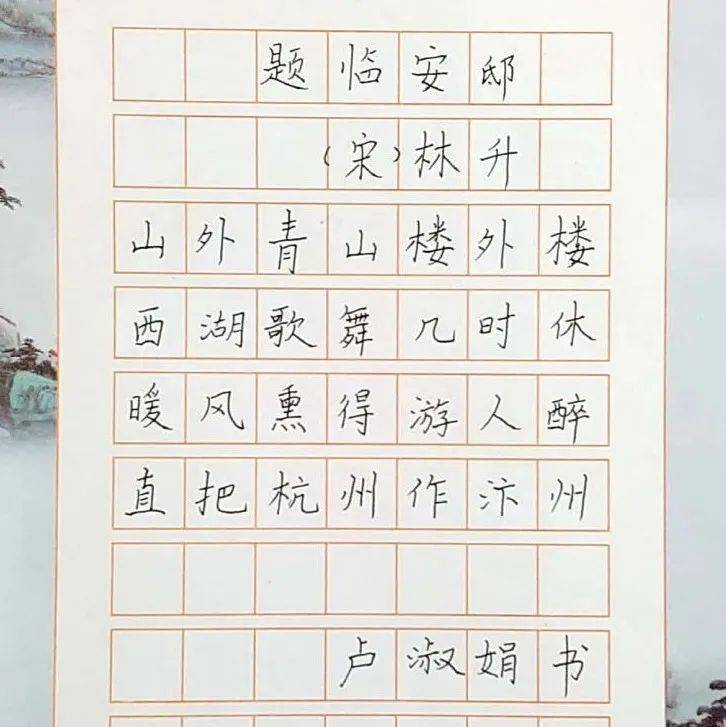 题临安邸
（宋）林升
山外青山楼外楼
西湖歌舞几时休
暖风熏得游人醉
直把杭州作汴州
卢淑娟书